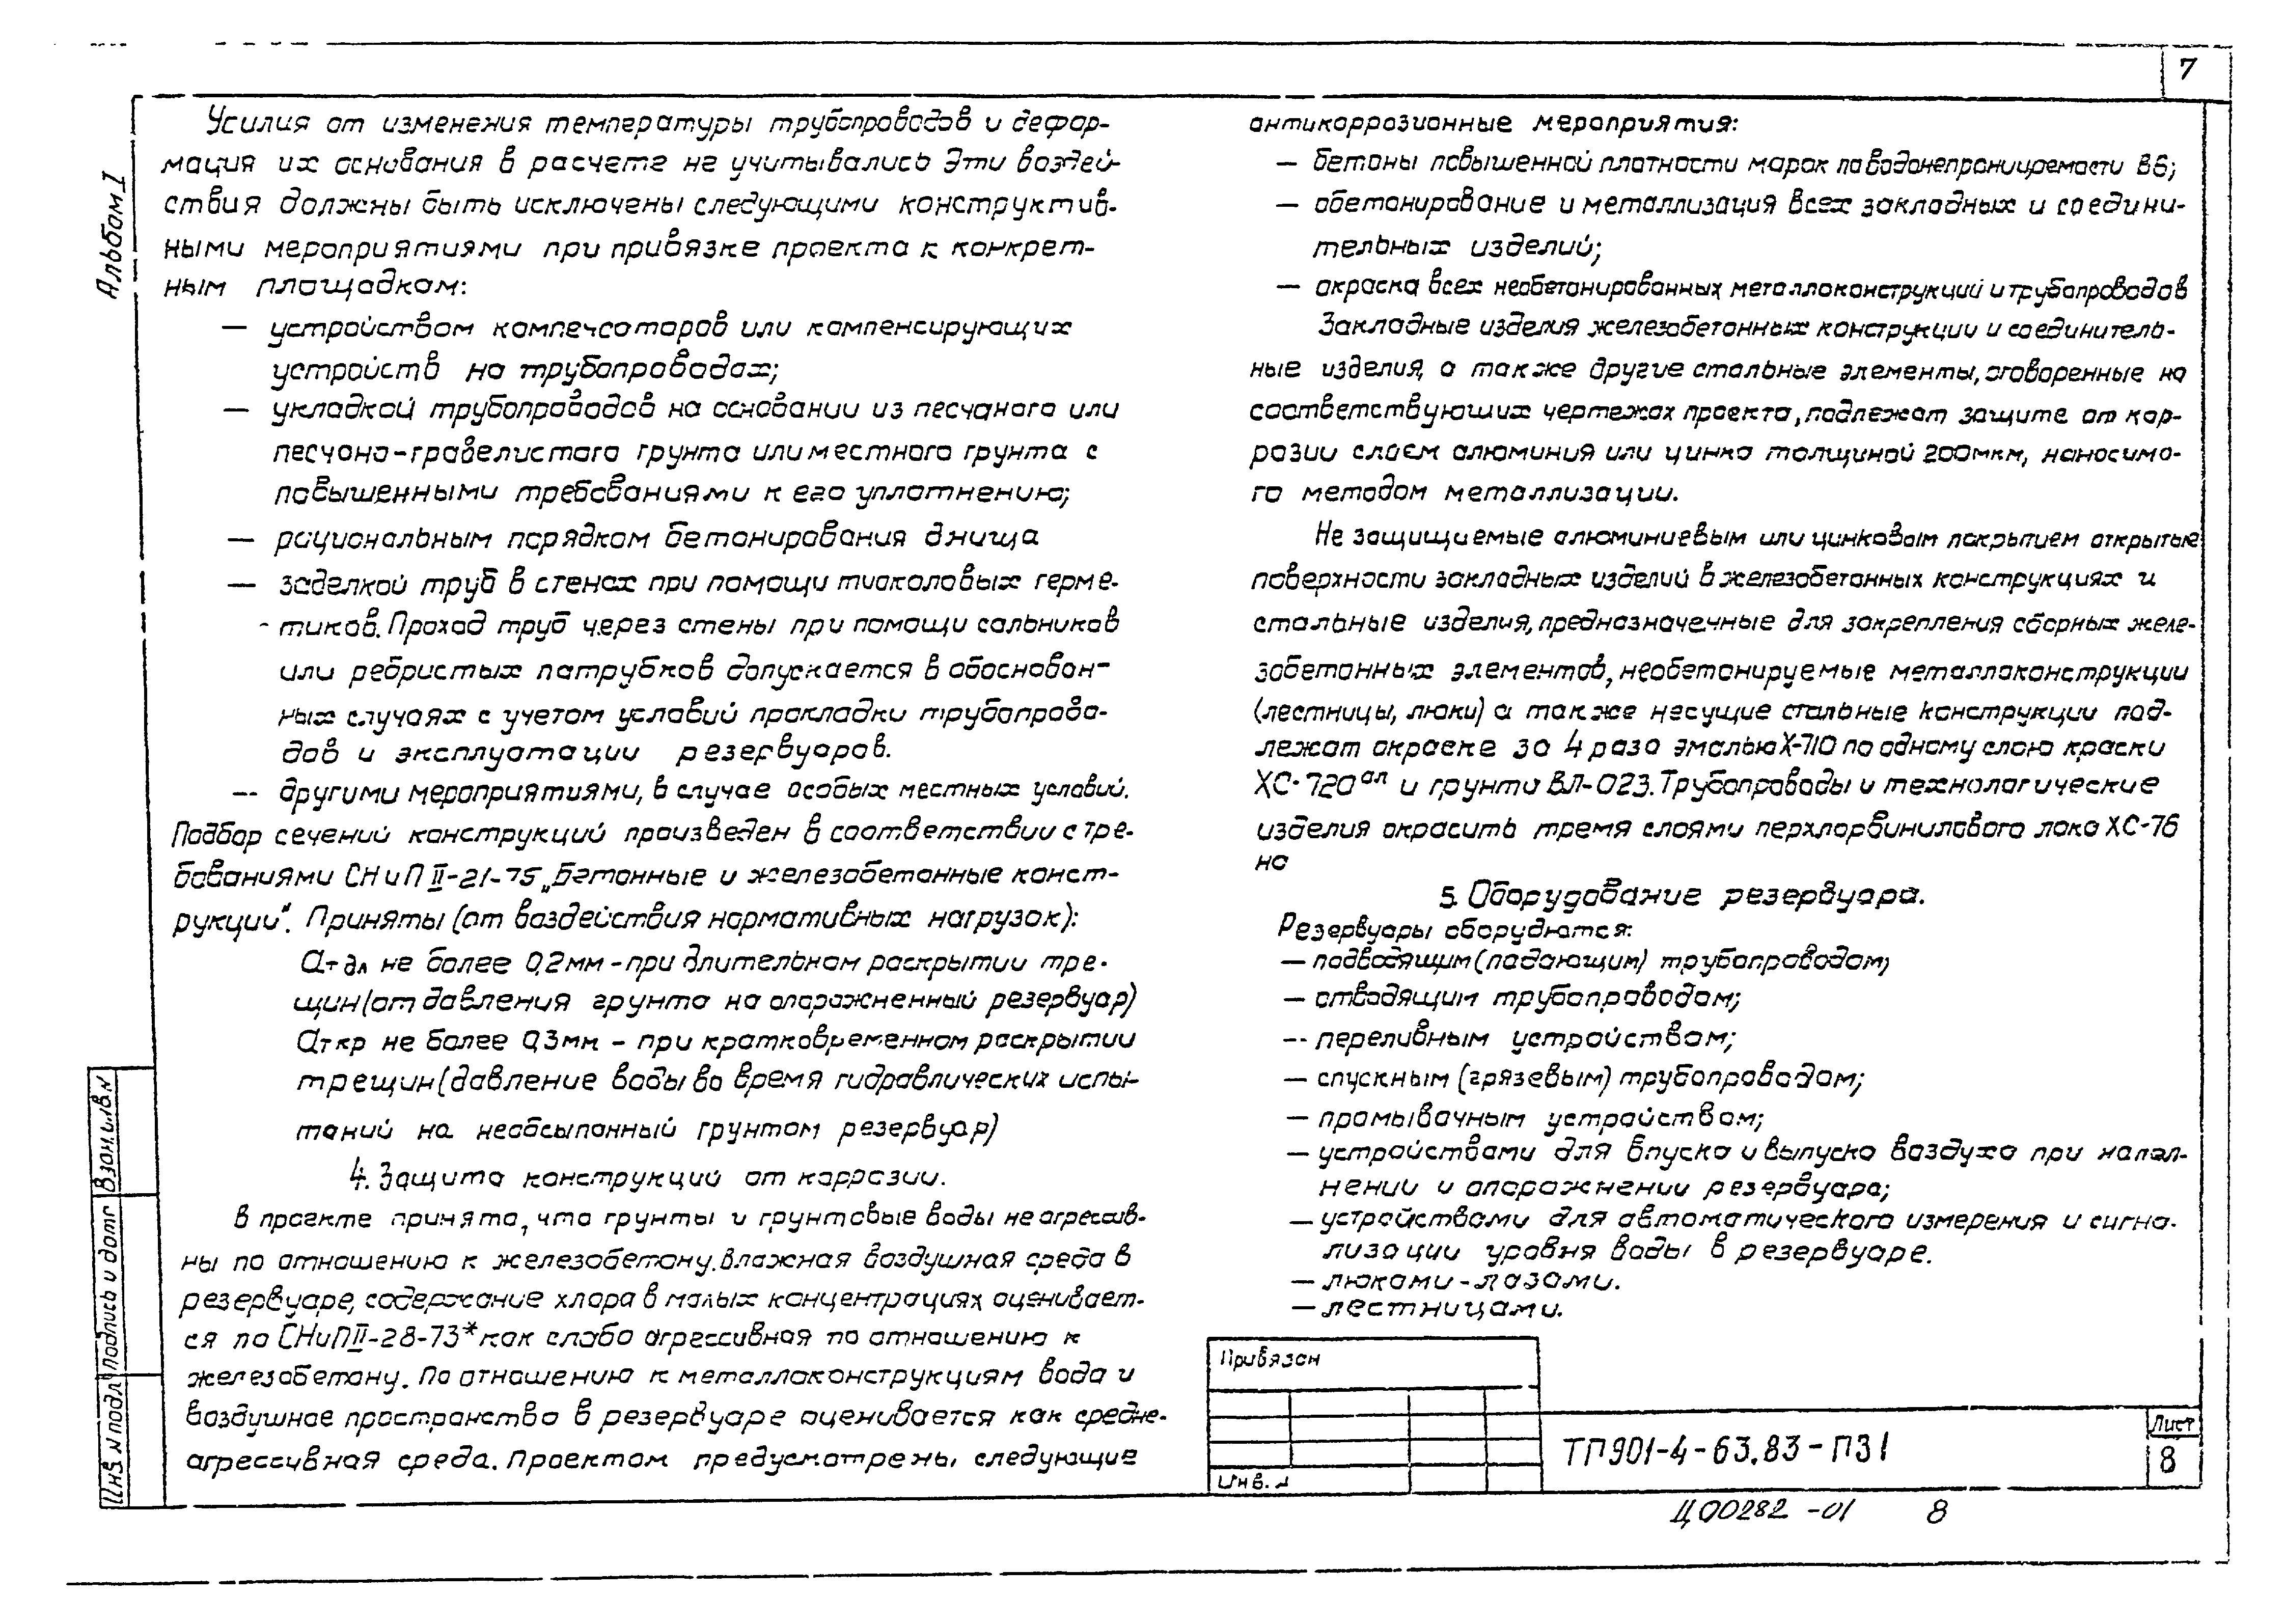 7
Альбом I
Усилия от изменения температуры трубопроводов и дефор-
мация их основания в расчете не учитывались Эти воздей-
ствия должны быть исключены следующими конструктив-
ными мероприятиями при привязке проекта к конкрет-
ным площадкам:
— устройством компенсаторов или компенсирующих
устройств на трубопроводах;
— укладкой трубопроводов на основании из песчаного или
песчано-гравелистого грунта или местного грунта с
повышенными требованиями к его уплотнению;
— рациональным порядком бетонирования днища
— заделкой труб в стенах при помощи тиоколовых герме-
тиков. Проход труб через стены при помощи сальников
или ребристых патрубков допускается в обоснован-
ных случаях с учетом условий прокладки трубопрово-
дов и эксплуатации резервуаров.
— другими мероприятиями, в случае особых местных условий.
Подбор сечений конструкций произведен в соответствии с тре-
бованиями СНиП II-21-75 „Бетонные и железобетонные конст-
рукции". Приняты (от воздействия нормативных нагрузок):
ат дл не более 0,2мм - при длительном раскрытии тре-
щин (от давления грунта на опорожненный резервуар)
ат кр не более 0,3мм - при кратковременном раскрытии
трещин (давление воды во время гидравлических испы-
таний на необсыпанный грунтом резервуар)
4. Защита конструкций от коррозии.
В проекте принято, что грунты и грунтовые воды не агрессив-
ны по отношению к железобетону. Влажная воздушная среда в
резервуаре, содержание хлора в малых концентрациях оценивает-
ся по СНиП II-28-73* как слабо агрессивная по отношению к
железобетону. По отношению к металлоконструкциям вода и
воздушное пространство в резервуаре оценивается как средне-
агрессивная среда. Проектом предусмотрены следующие
антикоррозионные мероприятия:
— бетоны повышенной плотности марок по водонепроницаемости В6;
— обетонирование и металлизация всех закладных и соедини-
тельных изделий;
— окраска всех необетонированных металлоконструкций и трубопроводов
Закладные изделия железобетонных конструкции и соединитель-
ные изделия, а также другие стальные элементы, оговоренные на
соответствующих чертежах проекта, подлежат защите от кор-
розии слоем алюминия или цинка толщиной 200мкм, наносимо-
го методом металлизации.
Не защищаемые алюминиевым или цинковым покрытием открытые
поверхности закладных изделий в железобетонных конструкциях и
стальные изделия, предназначенные для закрепления сборных желе-
зобетонных элементов, необетонируемые металлоконструкции
(лестницы, люки) а также несущие стальные конструкции под-
лежат окраске за 4 раза эмалью Х-710 по одному слою краски
ХС-720 ал и грунта ВЛ-023. Трубопроводы и технологические
изделия окрасить тремя слоями перхлорвинилового лака ХС-76
на
5. Оборудование резервуара.
Резервуары оборудуются:
— подводящим (подающим) трубопроводом;
— отводящим трубопроводом;
— переливным устройством;
— спускным (грязевым) трубопроводом;
— промывочным устройством;
— устройствами для впуска и выпуска воздуха при напол-
нении и опорожнении резервуара;
— устройствами для автоматического измерения и сигна-
лизации уровня воды в резервуаре.
— люками-лазами.
— лестницами.
Привязан
Инв. №
ТП901-4-63.83-ПЗ1
Лист
8
Ц00282-01 8
Взам. инв. №
Подпись и дата
Инв. № подл